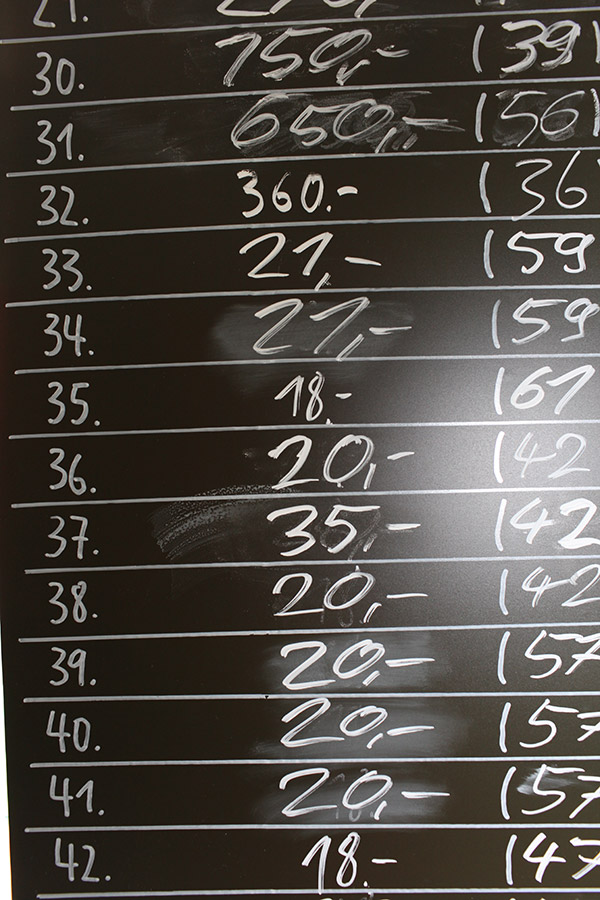 30. 150,- (39)
31. 650,- (56)
32. 360.- (36
33. 21,- (59
34. 21,- (59
35. 18,- (61
36. 20,- (42
37. 35,- (42
38. 20,- (42
39. 20,- (57
40. 20,- (57
41. 20,- (57
42. 18.- (47